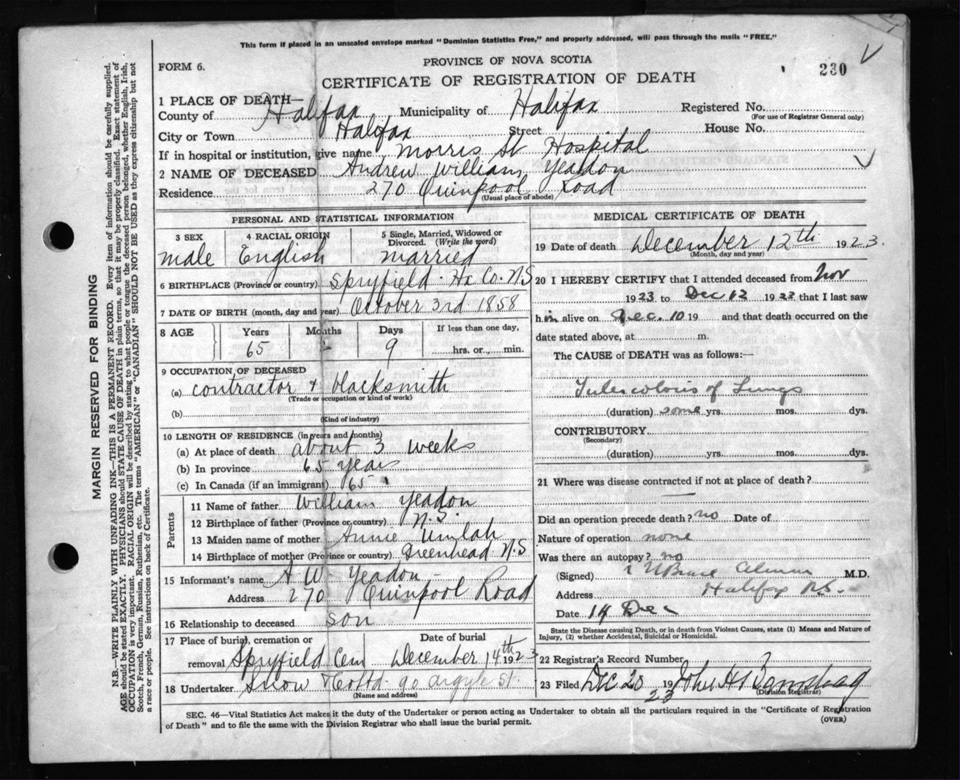 This form if placed in an unsealed envelope marked "Dominion Statistics Free," and properly addressed, will pass through the mails "FREE."
FORM 6.
PROVINCE OF NOVA SCOTIA
CERTIFICATE OF REGISTRATION OF DEATH
230
1 PLACE OF DEATH—
County of Halifax Municipality of Halifax Registered No.
(For use of Registrar General only)
City or Town Halifax Street House No.
If in hospital or institution, give name Morris St Hospital
2 NAME OF DECEASED Andrew William Yeadon
Residence 270 Quinpool Road
(Usual place of abode)
PERSONAL AND STATISTICAL INFORMATION
3 SEX male
4 RACIAL ORIGIN English
5 Single, Married, Widowed or Divorced. (Write the word) married
6 BIRTHPLACE (Province or country) Spryfield Hx Co. N.S
7 DATE OF BIRTH (month, day and year) October 3rd 1858
8 AGE Years 65 Months 2 Days 9 If less than one day, hrs. or min.
9 OCCUPATION OF DECEASED
(a) contractor & blacksmith
(Trade or occupation or kind of work)
(b)
(Kind of industry)
10 LENGTH OF RESIDENCE (in years and months)
(a) At place of death about 3 weeks
(b) In province 65 years
(c) In Canada (if an immigrant) 65
Parents
11 Name of father William Yeadon
12 Birthplace of father (Province or country) N.S.
13 Maiden name of mother Annie Umlah
14 Birthplace of mother (Province or country) Greenhead N.S
15 Informant's name A W Yeadon
Address 270 Quinpool Road
16 Relationship to deceased son
17 Place of burial, cremation or removal Spryfield Cem
Date of burial December 14th 1923
18 Undertaker Snow & Co Ltd 90 Argyle St.
MEDICAL CERTIFICATE OF DEATH
19 Date of death December 12th 1923.
(Month, day and year)
20 I HEREBY CERTIFY that I attended deceased from Nov
1923 to Dec 12 1923 that I last saw
him alive on Dec. 10 19 and that death occurred on the
date stated above, at m.
The CAUSE of DEATH was as follows:—
Tuberculosis of Lungs
(duration) some yrs. mos. dys.
CONTRIBUTORY.
(Secondary)
(duration) yrs. mos. dys.
21 Where was disease contracted if not at place of death?
Did an operation precede death? no Date of
Nature of operation none
Was there an autopay? no
(Signed) Almon M.D.
Address Halifax N.S.
Date 14 Dec
State the Disease causing Death, or in death from Violent Causes, state (1) Means and Nature of Injury, (2) whether Accidental, Suicidal or Homicidal.
22 Registrar's Record Number
23 Filed Dec 20 1923 John H
(Division Registrar)
SEC. 46—Vital Statistics Act makes it the duty of the Undertaker or person acting as Undertaker to obtain all the particulars required in the "Certificate of Registration
of Death" and to file the same with the Division Registrar who shall issue the burial permit.
(OVER)
MARGIN RESERVED FOR BINDING
N.B.—WRITE PLAINLY WITH UNFADING INK—THIS IS A PERMANENT RECORD. Every item of information should be carefully supplied.
AGE should be stated EXACTLY. PHYSICIANS should STATE CAUSE OF DEATH in plain terms, so that it may be properly classified. Exact statement of
OCCUPATION is very important. RACIAL ORIGIN will be described by stating to what people or tongue the deceased person belonged, whether English, Irish,
Scotch, French, German, Russian, Ruthenian, etc. The terms "AMERICAN" or "CANADIAN" SHOULD NOT BE USED as they express citizenship but not
a race or people. See instructions on back of Certificate.